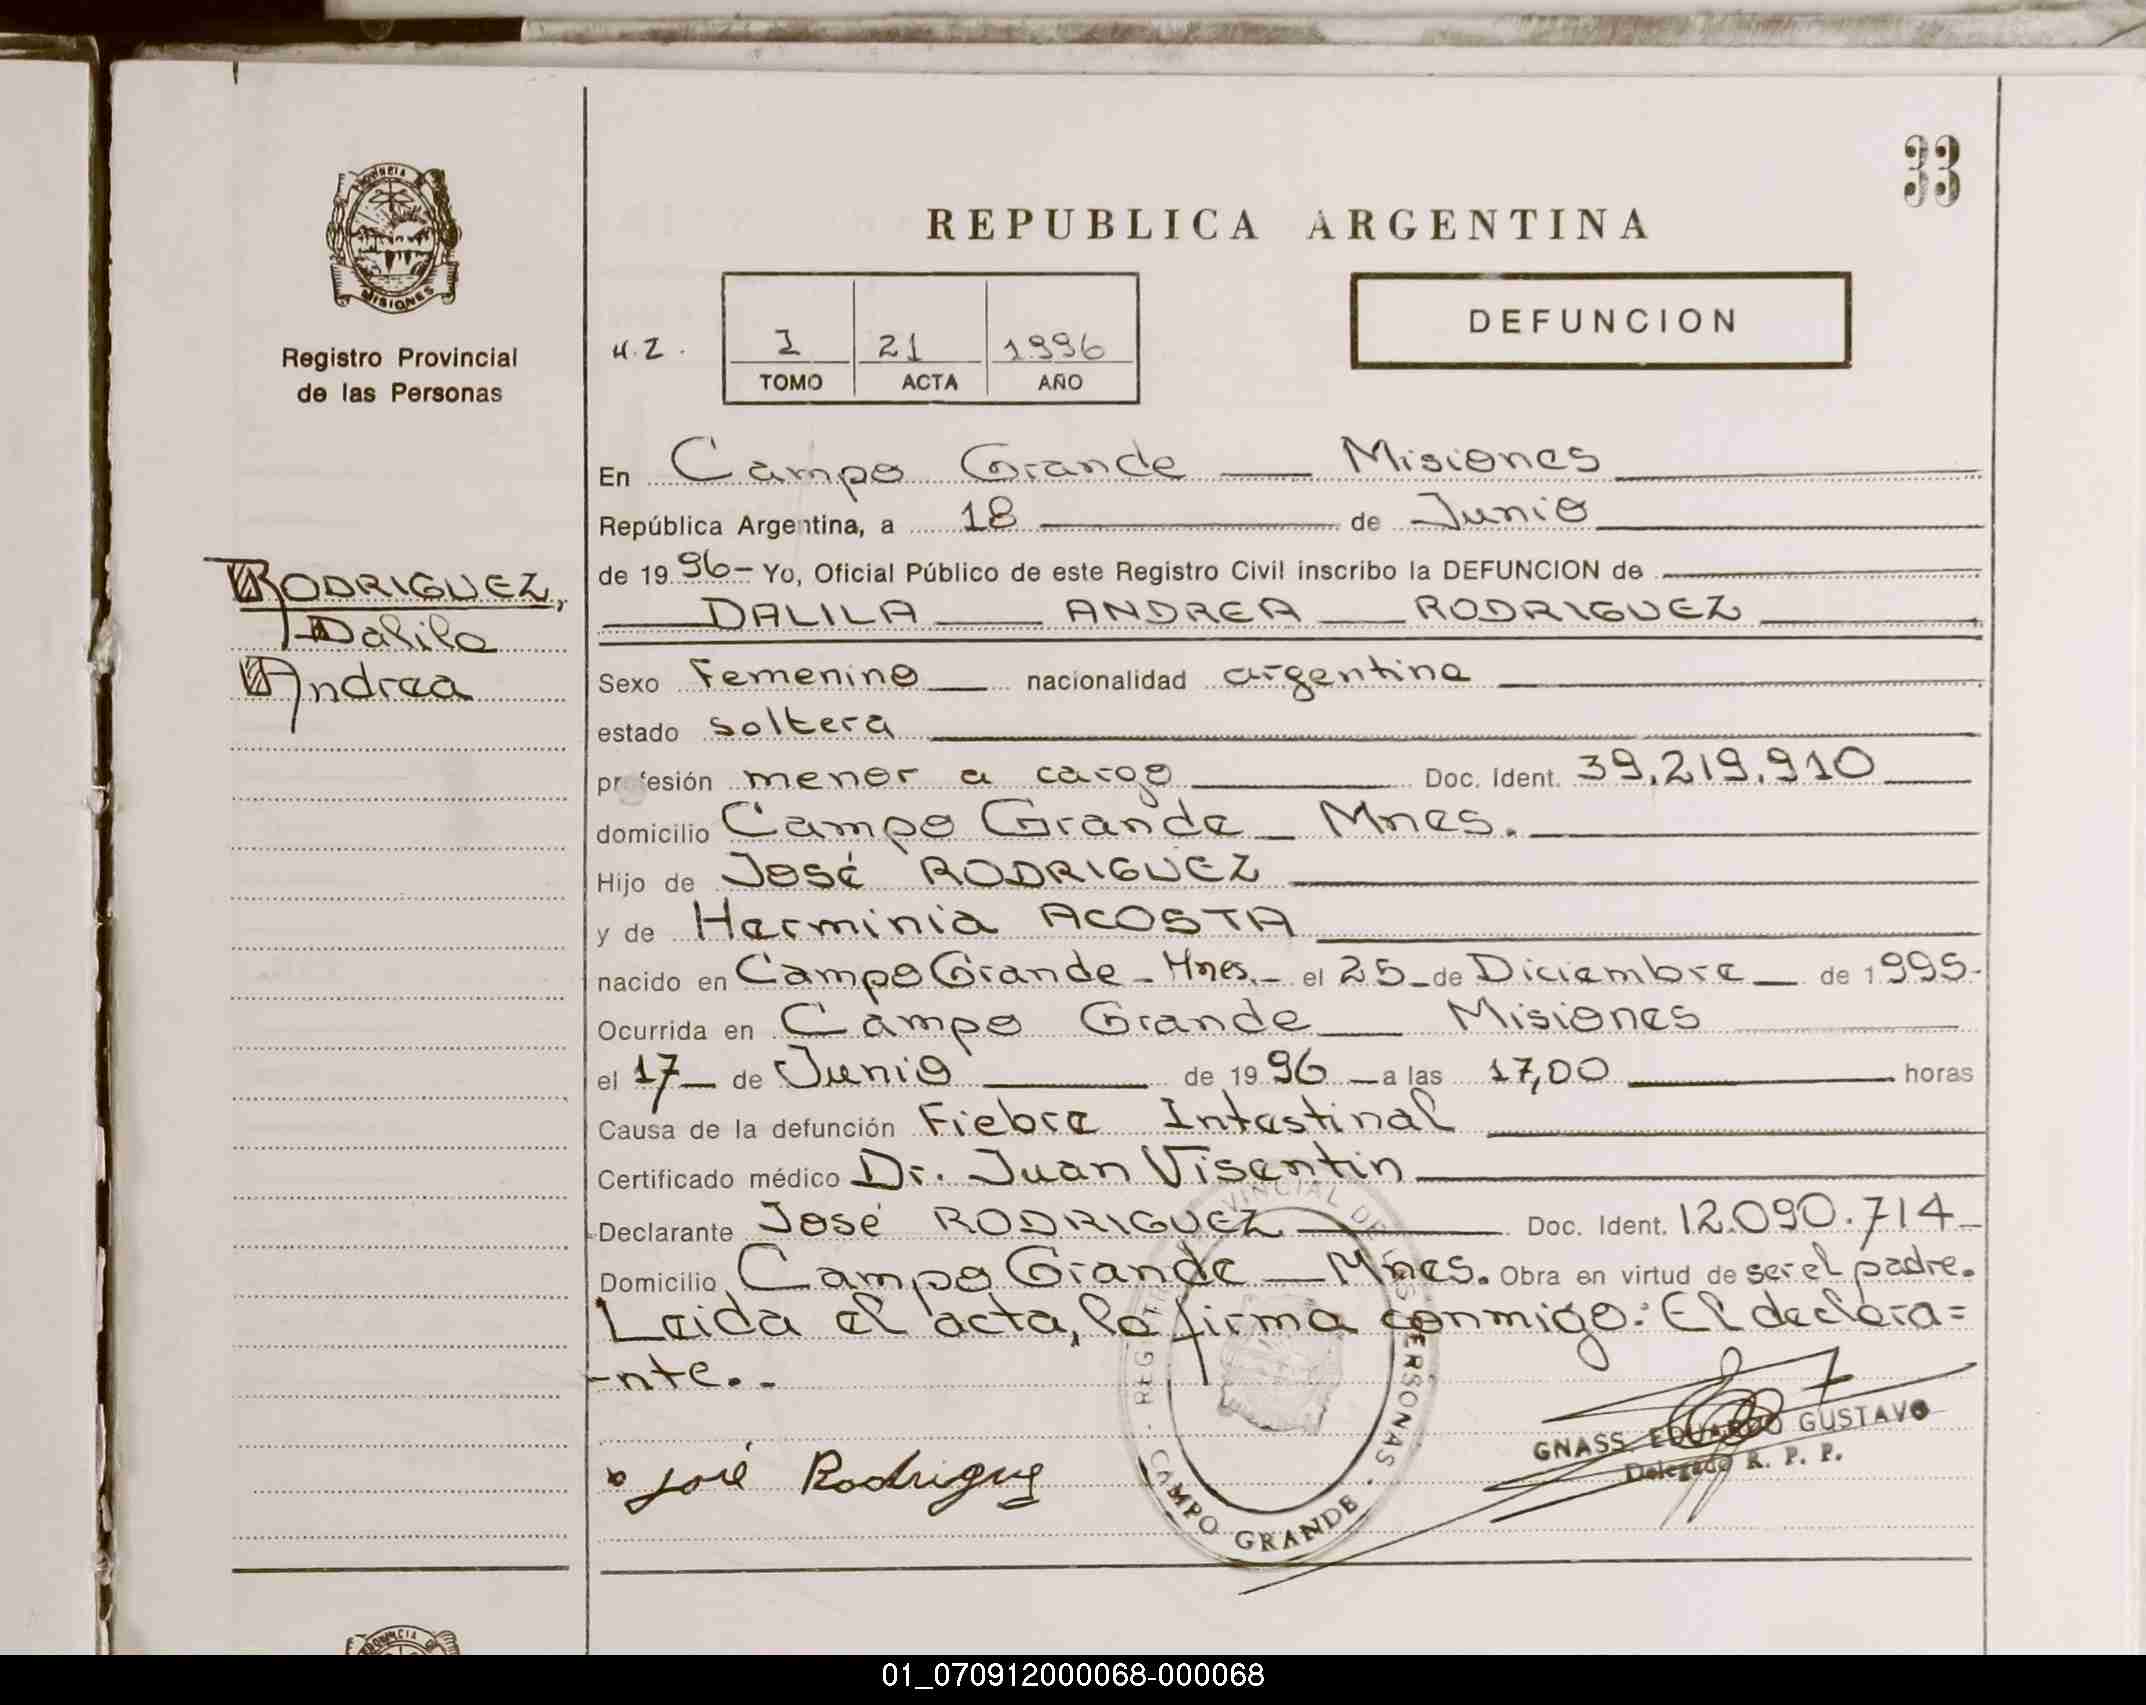 33
REPUBLICA ARGENTINA
PROVINCIA DE
MISIONES
Registro Provincial
de las Personas
DEFUNCION
H.Z. I 21 1996
TOMO ACTA AÑO
En Campo Grande — Misiones
República Argentina, a 18 de Junio
de 19 96- Yo, Oficial Público de este Registro Civil inscribo la DEFUNCION de
DALILA ANDREA RODRIGUEZ
RODRIGUEZ,
Dalila
Andrea
Sexo Femenino nacionalidad argentina
estado soltera
profesión menor a cargo Doc. Ident. 39.219.910
domicilio Campo Grande - Mnes.
Hijo de José RODRIGUEZ
y de Herminia ACOSTA
nacido en Campo Grande - Mnes.- el 25 de Diciembre de 1995-
Ocurrida en Campo Grande Misiones
el 17 de Junio de 19 96 a las 17,00 horas
Causa de la defunción Fiebre Intestinal
Certificado médico Dr. Juan Visentin
Declarante José RODRIGUEZ Doc. Ident. 12.090.714
Domicilio Campo Grande - Mnes. Obra en virtud de ser el padre.
Leida el acta, la firma conmigo: El declara=
-nte.-
José Rodriguez
REGISTRO PROVINCIAL DE LAS PERSONAS
CAMPO GRANDE
GNASS EDUARDO GUSTAVO
Delegado R. P. P.
PROVINCIA
01_070912000068-000068